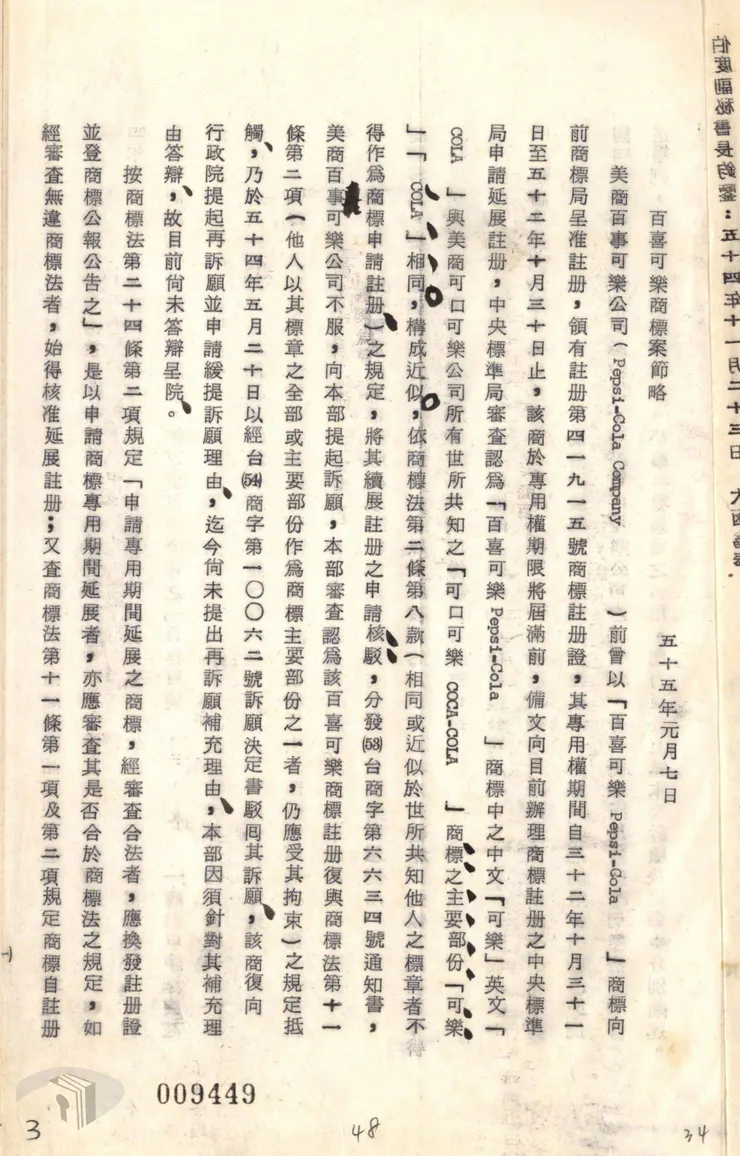 百喜可樂商標案節略
五十五年元月七日
美商百事可樂公司(Pepsi-Cola Company)前曾以「百喜可樂 Pepsi-Cola」商標向
前商標局呈准註册,領有註册第四一九一五號商標註册證,其專用權期間自三十二年十月三十一
日至五十二年十月三十日止,該商於專用權期限將屆滿前,備文向目前辦理商標註册之中央標準
局申請延展註册,中央標準局審查認爲「百喜可樂 Pepsi-Cola」商標中之中文「可樂」英文「
COLA」與美商可口可樂公司所有世所共知之「可口可樂 COCA-COLA」商標之主要部份「可樂
」「COLA」相同,構成近似,依商標法第二條第八款(相同或近似於世所共知他人之標章者不得
得作爲商標申請註册)之規定,將其續展註册之申請核駁,分發(53)台商字第六六三四號通知書,
美商百事可樂公司不服,向本部提起訴願,本部審查認爲該百喜可樂商標註册復與商標法第十一
條第二項(他人以其標章之全部或主要部份作爲商標主要部份之一者,仍應受其拘束)之規定抵
觸,乃於五十四年五月二十日以經台(54)商字第一〇〇六二號訴願決定書駁囘其訴願,該商復向
行政院提起再訴願並申請緩提訴願理由,迄今尙未提出再訴願補充理由,本部因須針對其補充理
由答辯,故目前尙未答辯呈院。
按商標法第二十四條第二項規定「申請專用期間延展之商標,經審查合法者,應換發註册證
並登商標公報公告之」,是以申請商標專用期間延展者,亦應審查其是否合於商標法之規定,如
經審查無違商標法者,始得核准延展註册;又查商標法第十一條第一項及第二項規定商標自註册
009449
3
48
34